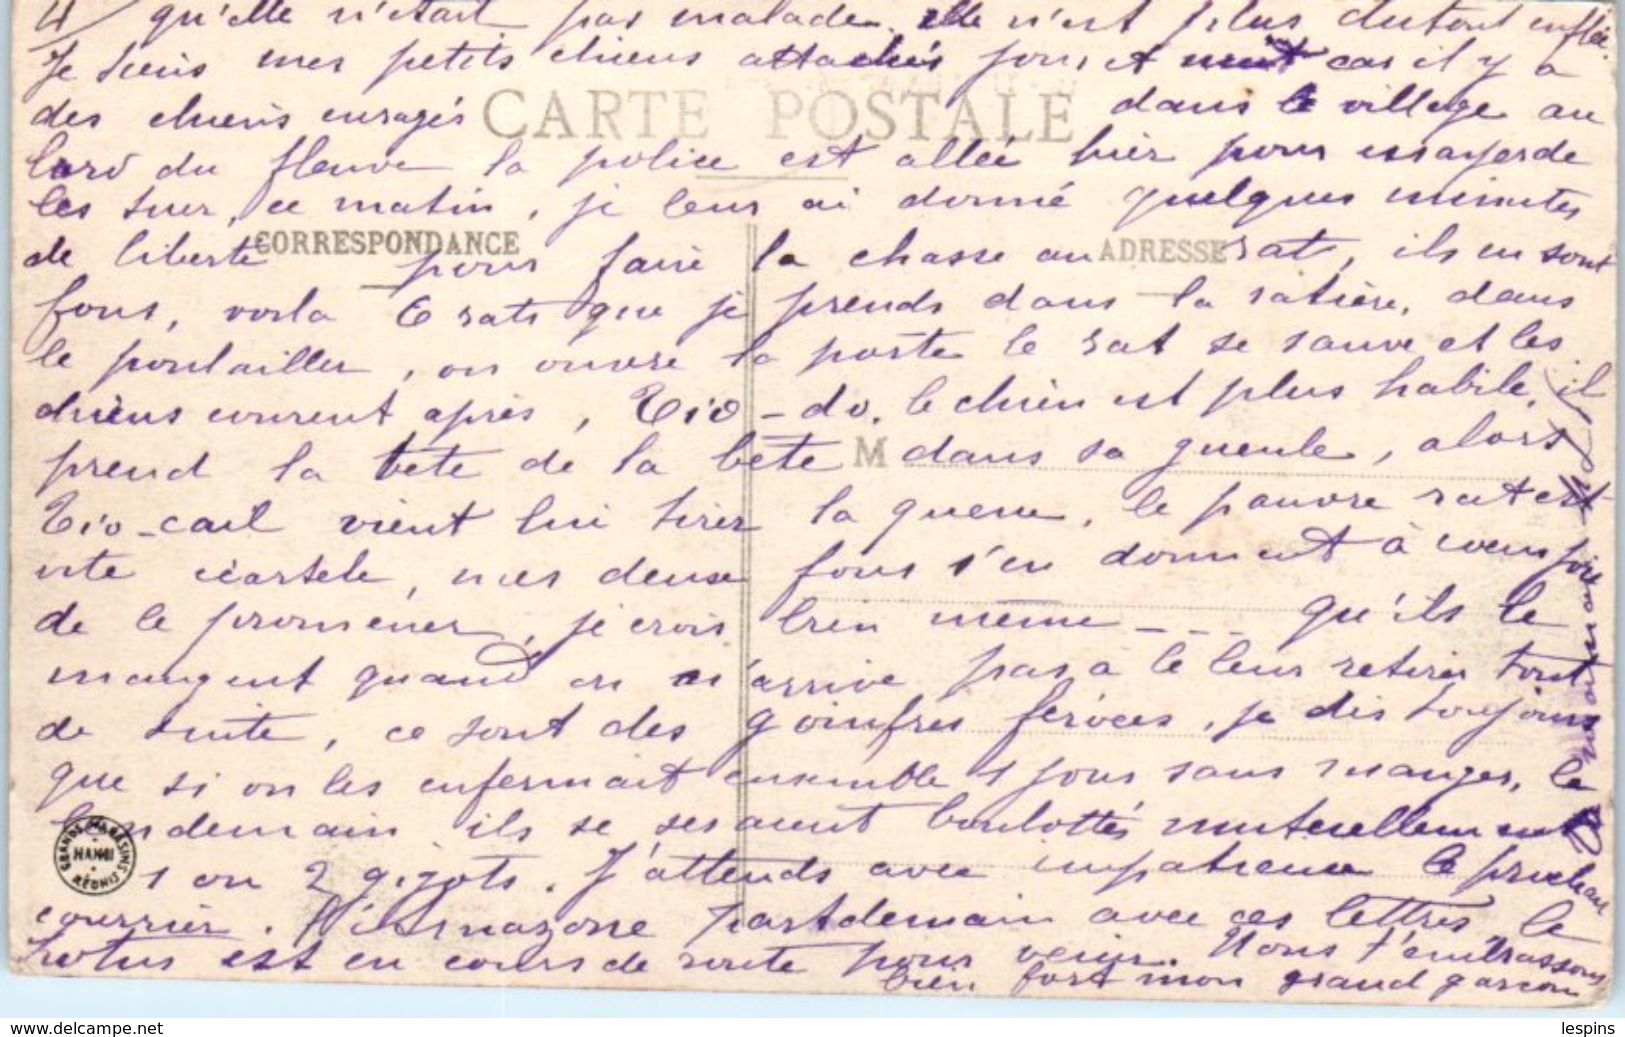 4/ qu'elle n'était pas malade. elle n'est plus dutout enflée
Je tiens mes petits chiens attachés jour et nuit car il y a
des chiens enragés dans le village au
CARTE POSTALE
bord du fleuve la police est allée hier pour essayer de
les tuer, ce matin, je leur ai donné quelques minutes
de liberté pour faire la chasse au rat, ils en sont
CORRESPONDANCE ADRESSE
fous, voila 6 rats que je prends dans la ratière, dans
le poulailler, on ouvre la porte le rat se sauve et les
chiens courent après, Tio-do. le chien est plus habile, il
prend la tete de la bête dans sa gueule, alors
M
Tio-cail vient lui tirer la queue, le pauvre rat est
vite écartelé, mes deux fous s'en donnent à coeur joie
de le promener, je crois bien même --- qu'ils le
mangent quand on n'arrive pas a le leur retirer tout
de suite, ce sont des goinfres féroces, je dis toujours
que si on les enfermait ensemble 1 jour sans manger, le
lendemain ils se seraient boulottés mutuellement
1 ou 2 gigots. J'attends avec impatience le prochain
courrier. l'Amazone part demain avec ces lettres, le
Lotus est en cours de route pour venir. Nous t'embrassons
bien fort mon grand garçon
GRANDS MAGASINS RÉUNIS HANOI
lespins
www.delcampe.net